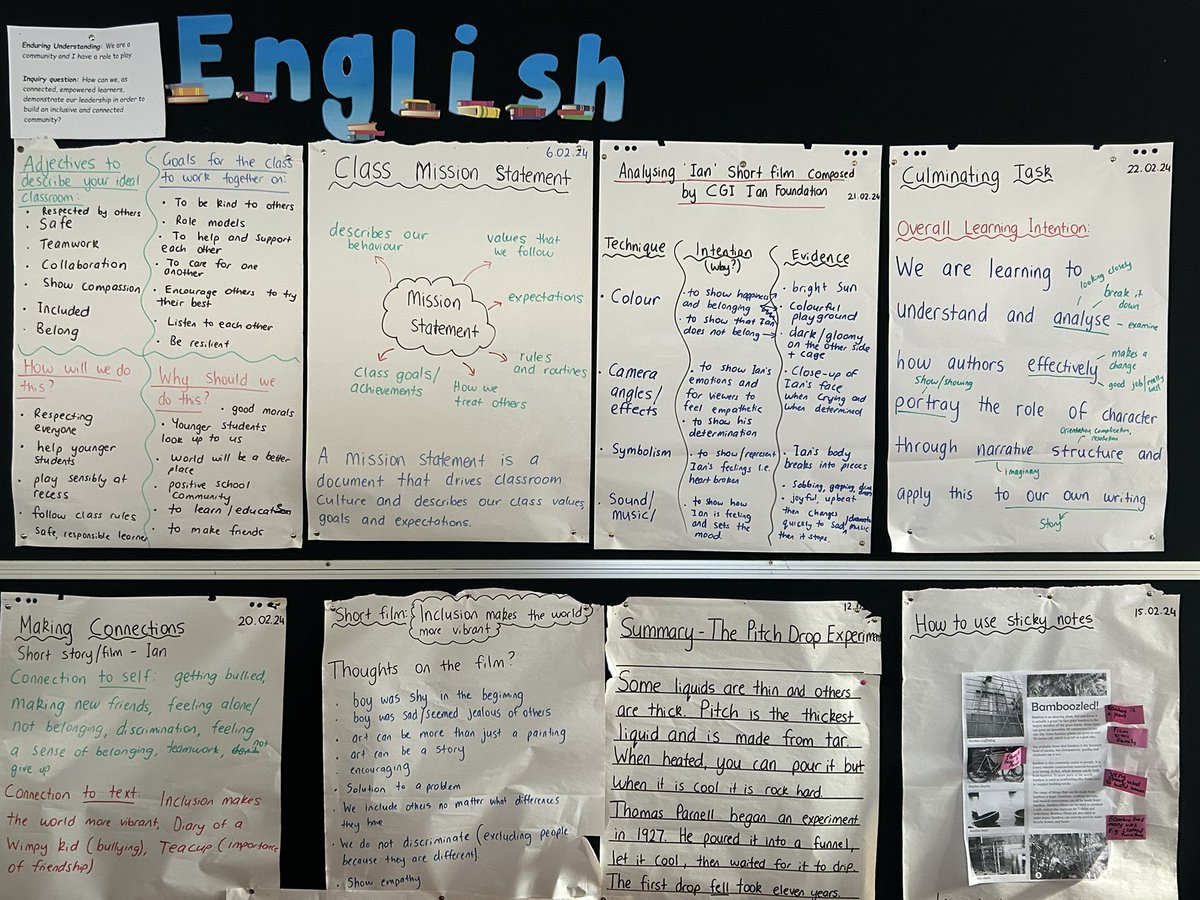 Enduring Understanding: We are a
community and I have a role to play
Inquiry question: How can we, as
connected, empowered learners,
demonstrate our leadership in order to
build an inclusive and connected
community?
English
Adjectives to
describe your ideal
classroom:
Respected by others
Safe
Teamwork
Collaboration
Show compassion
Included
Belong
Goals for the class
to work together on:
To be kind to others
Role models
To help and support
each other
To care for one
another
Encourage others to try
their best
Listen to each other
Be resilient
How will we do
this?
Respecting
everyone
help younger
students
play sensibly at
recess
follow class rules
Safe, responsible learner
Why should we
do this?
good morals
Younger students
look up to us
World will be a better
place
positive school
community
to learn/education
to make friends
6.02.24
Class Mission Statement
describes our
behaviour
values that
we follow
Mission
Statement
expectations
rules
and routines
How we
treat others
Class goals/
achievements
A Mission Statement is a
document that drives classroom
Culture and describes our class values
goals and expectations.
Analysing 'Ian' Short film composed
by CGI Ian Foundation
21.02.24
Technique
Intention
(why?)
Evidence
Colour
to show happiness
and belonging
to show that Ian
does not belong
bright sun
Colourful
playground
dark/gloomy
on the other side
+ cage
Camera
angles/
effects
to show Ian's
emotions and
for viewers to
feel empathetic
to show his
determination
Close-up of
Ian's face
when crying and
when determined
Symbolism
to show/represent
Ian's feelings i.e.
heart broken
Ian's body
breaks into pieces
Sound/
music/
to show how
Ian is feeling
and sets the
mood.
Sobbing, gasping
joyful, upbeat
then changes
quickly to sad music
then it stops.
22.02.24
Culminating Task
Overall Learning Intention:
We are learning to
looking closely
break it
down
understand and analyse - examine
how authors effectively
makes a
change
good job/really
well
show/showing
portray the role of character
Orientation, complication,
resolution
through narrative structure and
imaginary
apply this to our own writing
Story
20.02.24
Making Connections
Short story/film - Ian
Connection to self: getting bullied,
making new friends, feeling alone/
not belonging, discrimination, feeling
a sense of belonging, teamwork, not
give up
Connection to text: Inclusion makes
the world more vibrant, Diary of a
Wimpy kid (bullying), Teacup (importance
of friendship)
Short film: Inclusion makes the world
more vibrant
Thoughts on the film?
boy was shy in the beginning
boy was sad/seemed jealous of others
art can be more than just a painting
art can be a story
encouraging
Solution to a problem
We include others no matter what differences
they have
We do not discriminate (excluding people
because they are different).
Show empathy
Summary - The Pitch Drop Experiment
Some liquids are thin and others
are thick. Pitch is the thickest
liquid and is made from tar.
When heated, you can pour it but
when it is cool it is rock hard.
Thomas Parnell began an experiment
in 1927. He poured it into a funnel,
let it cool, then waited for it to drip.
The first drop fell took eleven years.
15.02.24
How to use sticky notes
Bamboozled!